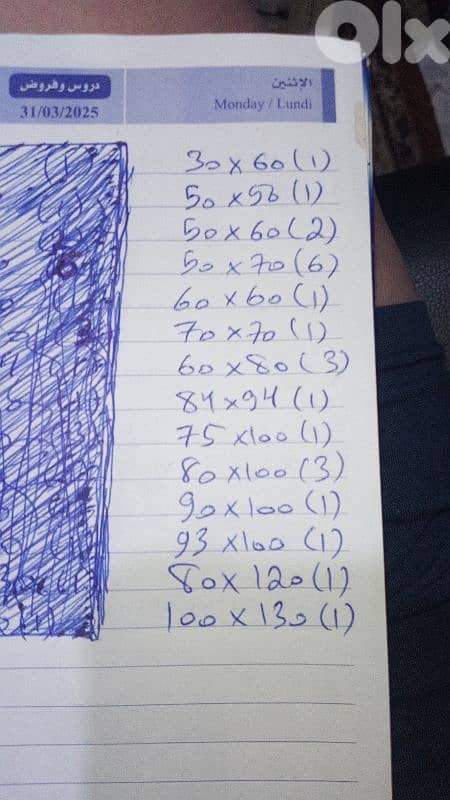 olx
دروس وفروض
31/03/2025
الإثنين
Monday / Lundi
30 x 60 (1)
50 x 50 (1)
50 x 60 (2)
50 x 70 (6)
60 x 60 (1)
70 x 70 (1)
60 x 80 (3)
84 x 94 (1)
75 x 100 (1)
80 x 100 (3)
90 x 100 (1)
93 x 100 (1)
80 x 120 (1)
100 x 130 (1)